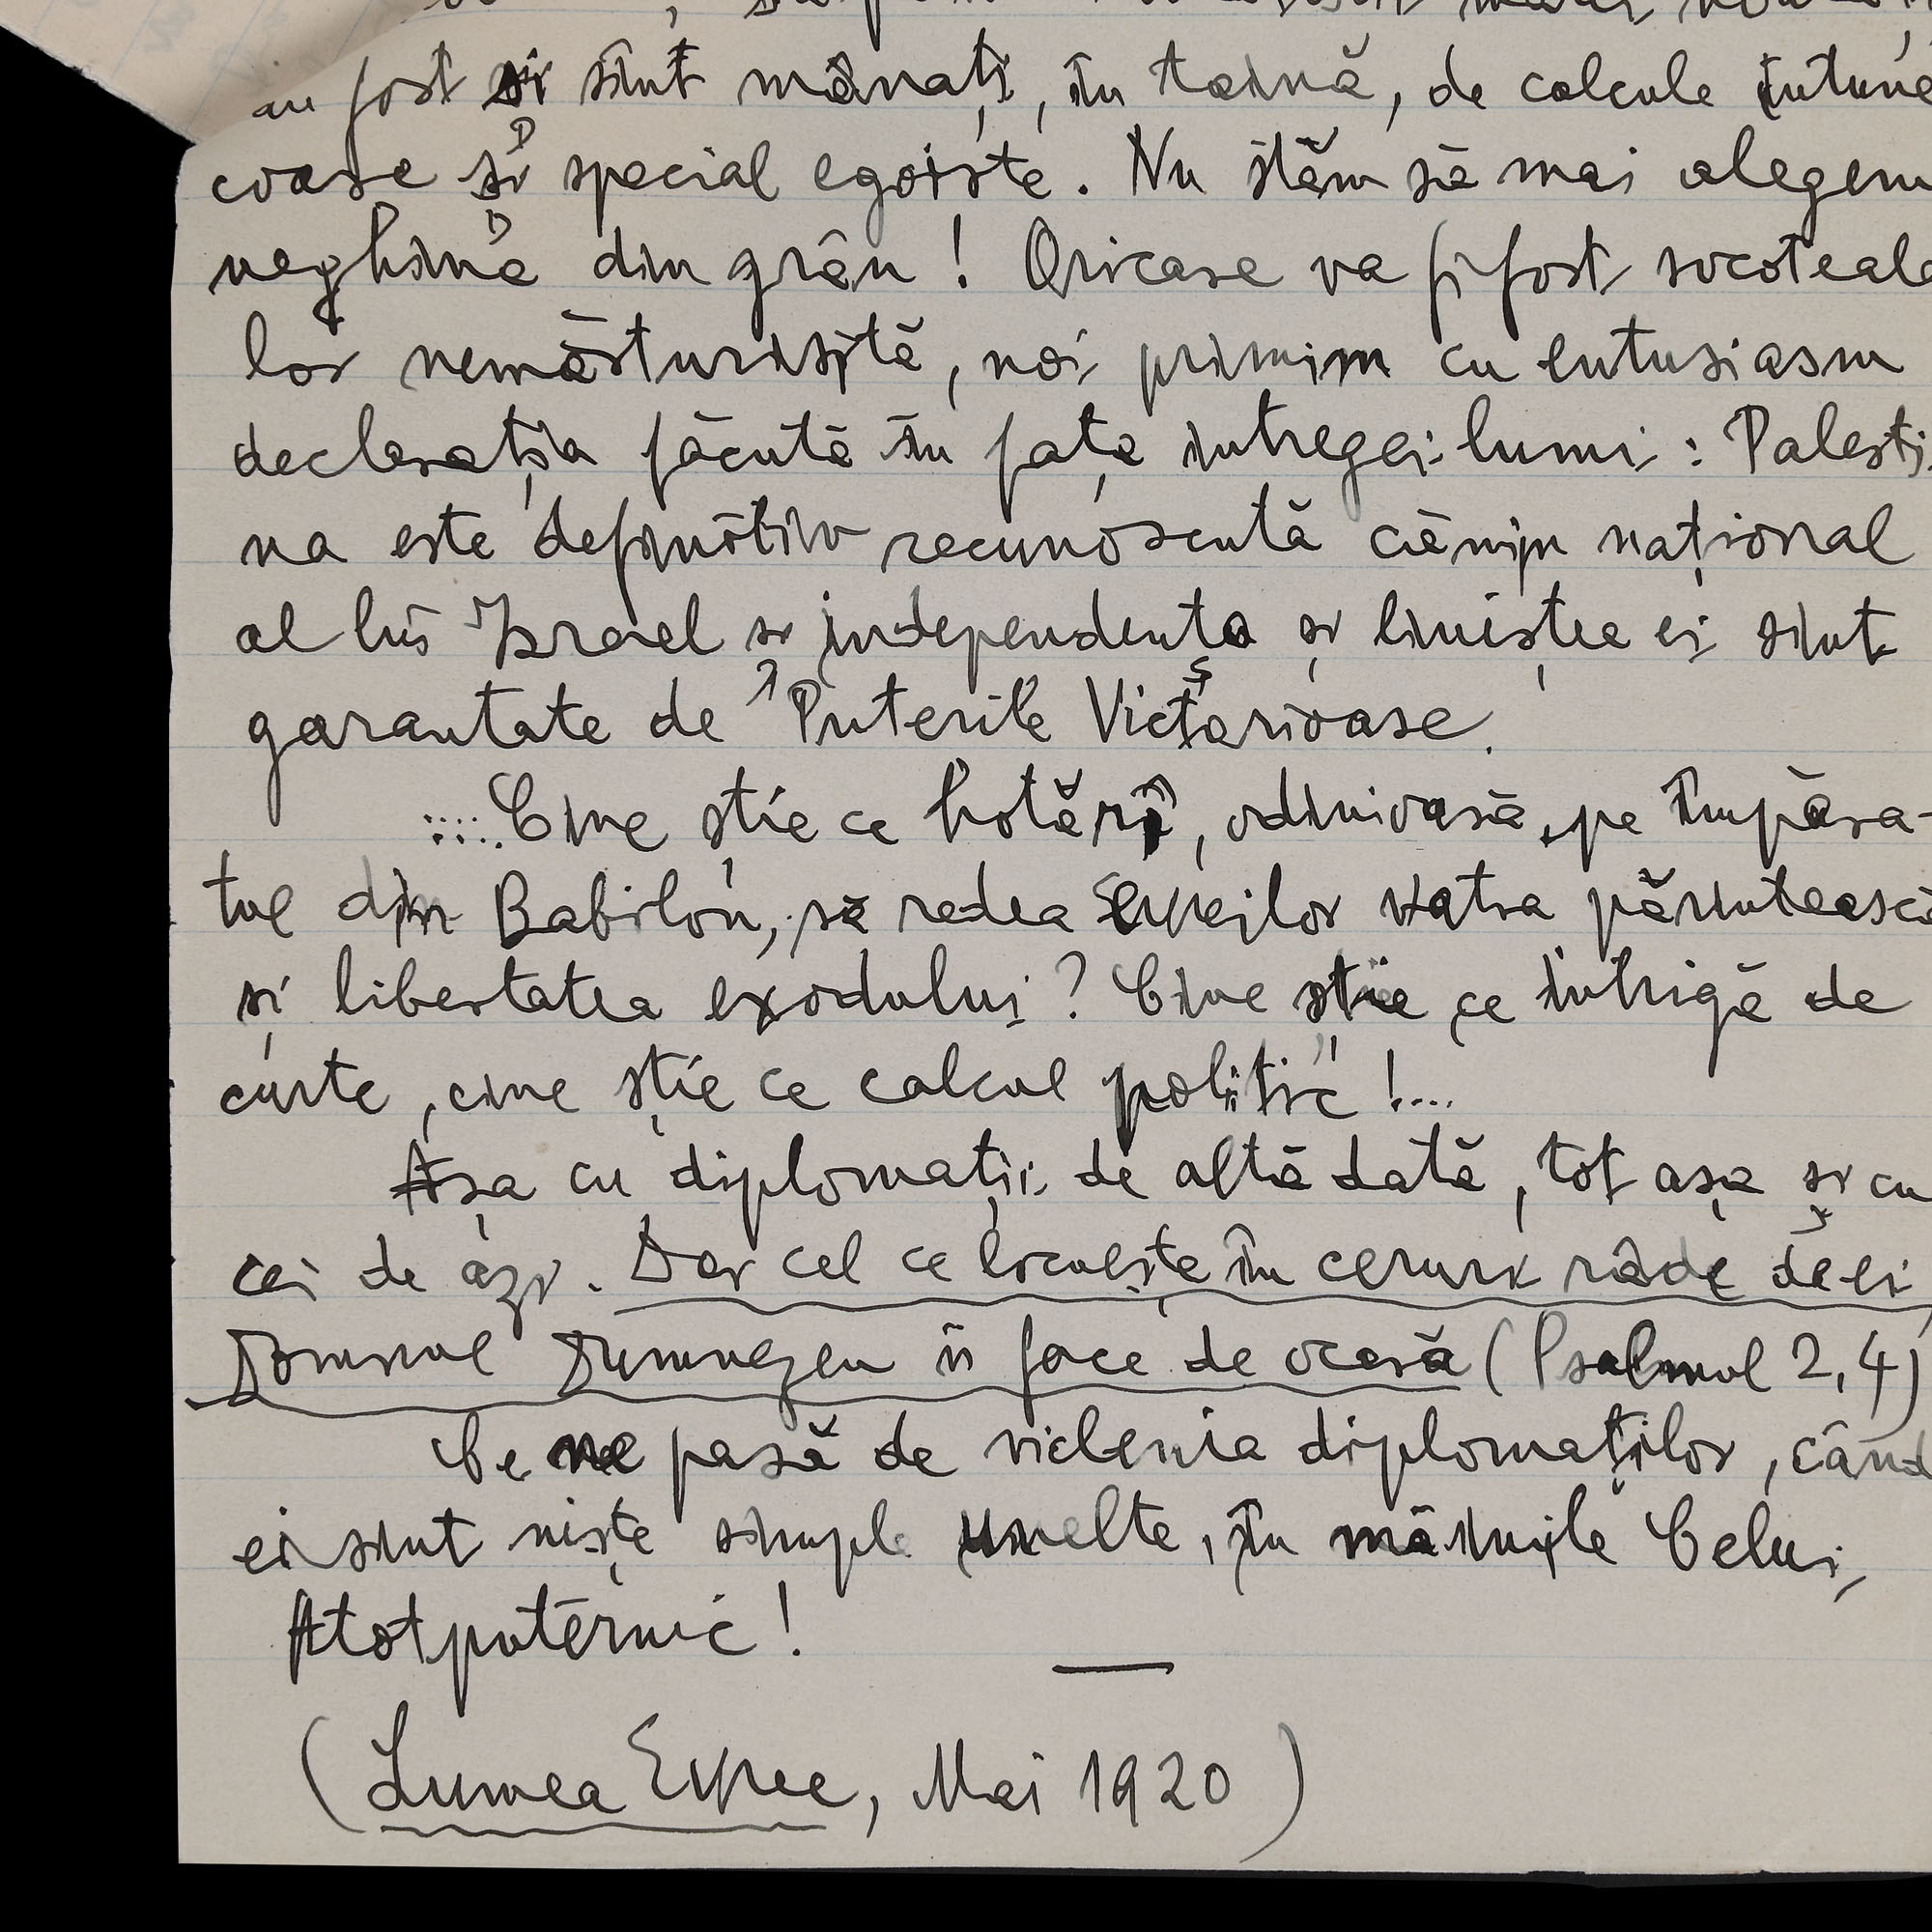 au fost și sînt mânați, în taină, de calcule întune
coase și special egoiste. Nu stăm să mai alegem
neghină din grâu! Oricare va fi fost socoteala
lor nemărturisită, noi primim cu entusiasm
declarația făcută în fața întregei lumi: Palesti
na este definitiv recunoscută cămin național
al lui Israel și independența și liniștea ei sînt
garantate de Puterile Victorioase.
.... Cine știe ce hotărî, odinioară, pe împăra-
tul din Babilon, să redea Evreilor vatra părintească
și libertatea exodului? Cine știe ce intrigă de
curte, cine știe ce calcul politic!...
Așa cu diplomații de altă dată, tot așa și cu
cei de azi. Dar cel ce locuește în ceruri râde de ei,
Domnul Dumnezeu îi face de ocară (Psalmul 2,4)
Ce ne pasă de viclenia diplomaților, când
ei sînt niște simple unelte, în mâinile Celui
Atotputernic!
(Lumea Evree, Mai 1920)